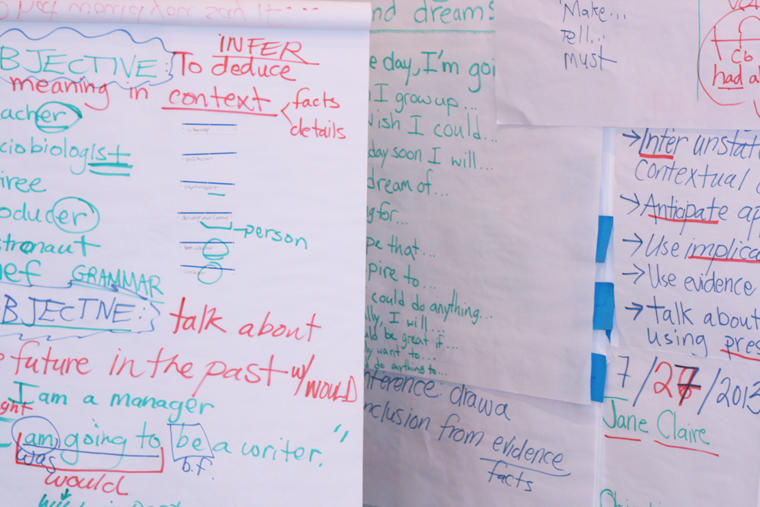 OBJECTIVE: To deduce
INFER
meaning in context
facts
details
acher
ciobiologist
iree
oducer
person
stronaut
ef
GRAMMAR
BJECTIVE: talk about
future in the past w/ WOULD
I am a manager
ght
I am going to be a writer."
was
b.f.
would
nd dreams
e day, I'm goi
I grow up...
ish I could...
day soon I will...
dream of...
g for...
pe that...
pire to...
could do anything...
lly, I will...
ld be great if...
y want to...
do anything to...
nference drawa
nclusion from evidence
facts
Make...
Tell...
Must
Cb
had a
→Infer unstat
contextual
→Anticipate ap
→Use implica
→Use evidence
→talk about
using pres
7/27/2013
Jane Claire